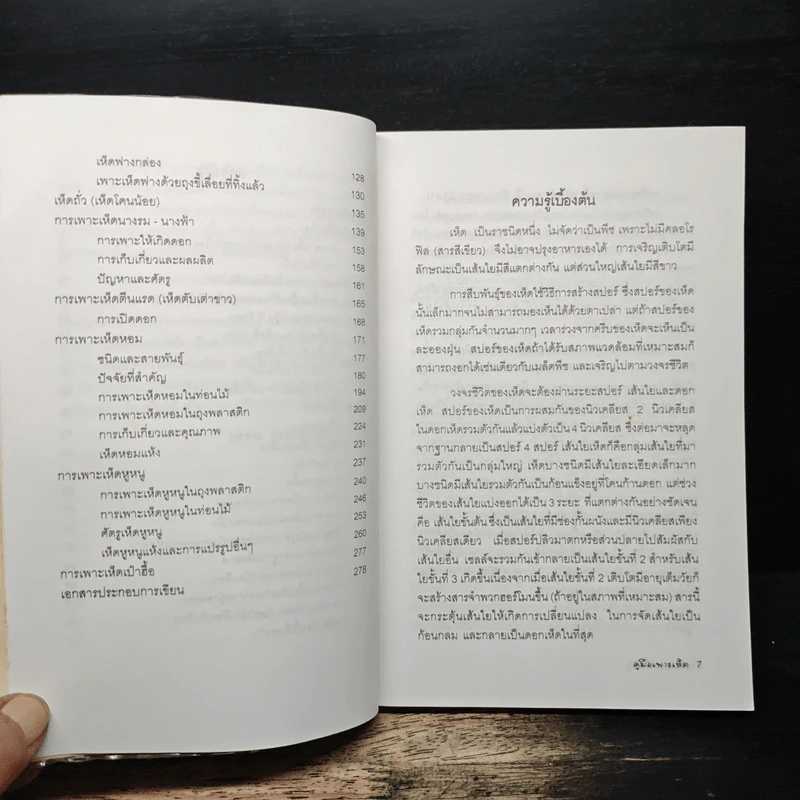 เห็ดฟางกล่อง 128
เพาะเห็ดฟางด้วยถุงขี้เลื่อยที่ทิ้งแล้ว 130
เห็ดถั่ว (เห็ดโคนน้อย) 135
การเพาะเห็ดนางรม - นางฟ้า 139
การเพาะให้เกิดดอก 153
การเก็บเกี่ยวและผลผลิต 158
ปัญหาและศัตรู 161
การเพาะเห็ดตีนแรด (เห็ดตับเต่าขาว) 165
การเปิดดอก 168
การเพาะเห็ดหอม 171
ชนิดและสายพันธุ์ 177
ปัจจัยที่สำคัญ 180
การเพาะเห็ดหอมในท่อนไม้ 194
การเพาะเห็ดหอมในถุงพลาสติก 209
การเก็บเกี่ยวและคุณภาพ 224
เห็ดหอมแห้ง 231
การเพาะเห็ดหูหนู 237
การเพาะเห็ดหูหนูในถุงพลาสติก 240
การเพาะเห็ดหูหนูในท่อนไม้ 246
ศัตรูเห็ดหูหนู 253
เห็ดหูหนูแห้งและการแปรรูปอื่นๆ 260
การเพาะเห็ดเป๋าฮื้อ 277
เอกสารประกอบการเขียน 278
ความรู้เบื้องต้น
เห็ด เป็นราชนิดหนึ่ง ไม่จัดว่าเป็นพืช เพราะไม่มีคลอโร
ฟิล (สารสีเขียว) จึงไม่อาจปรุงอาหารเองได้ การเจริญเติบโตมี
ลักษณะเป็นเส้นใยมีสีแตกต่างกัน แต่ส่วนใหญ่เส้นใยมีสีขาว
การสืบพันธุ์ของเห็ดใช้วิธีการสร้างสปอร์ ซึ่งสปอร์ของเห็ด
นั้นเล็กมากจนไม่สามารถมองเห็นได้ด้วยตาเปล่า แต่ถ้าสปอร์ของ
เห็ดรวมกลุ่มกันจำนวนมากๆ เวลาร่วงจากครีบของเห็ดจะเห็นเป็น
ละอองฝุ่น สปอร์ของเห็ดถ้าได้รับสภาพแวดล้อมที่เหมาะสมก็
สามารถงอกได้เช่นเดียวกับเมล็ดพืช และเจริญไปตามวงจรชีวิต
วงจรชีวิตของเห็ดจะต้องผ่านระยะสปอร์ เส้นใยและดอก
เห็ด สปอร์ของเห็ดเป็นการผสมกันของนิวเคลียส 2 นิวเคลียส
ในดอกเห็ดรวมกันแล้วแบ่งตัวเป็น 4 นิวเคลียส ซึ่งต่อมาจะหลุด
จากฐานกลายเป็นสปอร์ 4 สปอร์ เส้นใยเห็ดก็คือกลุ่มเส้นใยที่มา
รวมตัวกันเป็นกลุ่มใหญ่ เห็ดบางชนิดมีเส้นใยละเอียดเล็กมาก
บางชนิดมีเส้นใยรวมตัวกันเป็นก้อนแข็งอยู่ที่โคนก้านดอก แต่ช่วง
ชีวิตของเส้นใยแบ่งออกได้เป็น 3 ระยะ ที่แตกต่างกันอย่างชัดเจน
คือ เส้นใยขั้นต้น ซึ่งเป็นเส้นใยที่มีช่องกั้นผนังและมีนิวเคลียสเพียง
นิวเคลียสเดียว เมื่อสปอร์ปลิวมาตกหรือส่วนปลายไปสัมผัสกับ
เส้นใยอื่น เซลล์จะรวมกันเข้ากลายเป็นเส้นใยขั้นที่ 2 สำหรับเส้น
ใยขั้นที่ 3 เกิดขึ้นเนื่องจากเมื่อเส้นใยขั้นที่ 2 เติบโตมีอายุเต็มวัยก็
จะสร้างสารจำพวกฮอร์โมนขึ้น (ถ้าอยู่ในสภาพที่เหมาะสม) สารนี้
จะกระตุ้นเส้นใยให้เกิดการเปลี่ยนแปลง ในการจัดเส้นใยเป็น
ก้อนกลม และกลายเป็นดอกเห็ดในที่สุด
คู่มือเพาะเห็ด 7